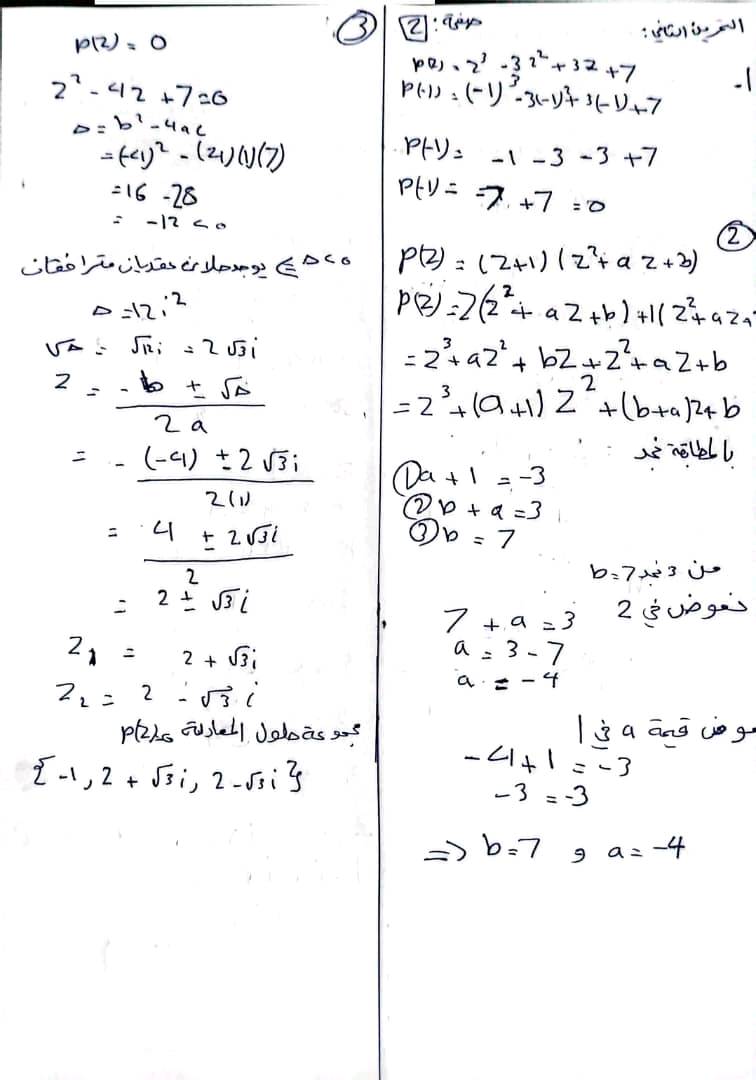 التمرين الثاني: صفحة: 2
1- p(z) = z³ - 3z² + 3z + 7
p(-1) = (-1)³ - 3(-1)² + 3(-1) + 7
p(-1) = -1 - 3 - 3 + 7
p(-1) = -7 + 7 = 0
2
p(z) = (z+1)(z² + az + b)
p(z) = z(z² + az + b) + 1(z² + az +
= z³ + az² + bz + z² + az + b
= z³ + (a+1)z² + (b+a)z + b
بالمطابقة نجد:
① a + 1 = -3
② b + a = 3
③ b = 7
من 3 نجد b = 7
نعوض في 2
7 + a = 3
a = 3 - 7
a = -4
عوض قيمة a في 1
-4 + 1 = -3
-3 = -3
=> b = 7 و a = -4
3
p(z) = 0
z² - 4z + 7 = 0
Δ = b² - 4ac
= (-4)² - (4)(1)(7)
= 16 - 28
= -12 < 0
Δ < 0 <= يوجد حلان عقديان مترافقان
Δ = 12i²
√Δ = √12i = 2√3i
z = -b ± √Δ / 2a
= -(-4) ± 2√3i / 2(1)
= 4 ± 2√3i / 2
= 2 ± √3i
z₁ = 2 + √3i
z₂ = 2 - √3i
مجموعة حلول المعادلة p(z)=0
{-1, 2 + √3i, 2 - √3i}